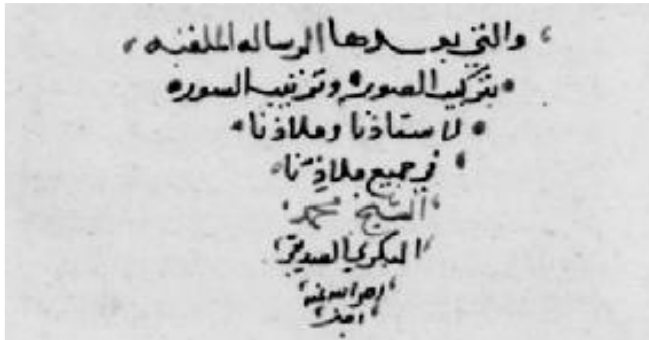 والتي بعدها الرساله الملقبه
بتركيب الصوره وترتيب السوره
لاستاذنا وملاذنا
في جميع ملاذنا
الشيخ محمد
البكري الصديقي